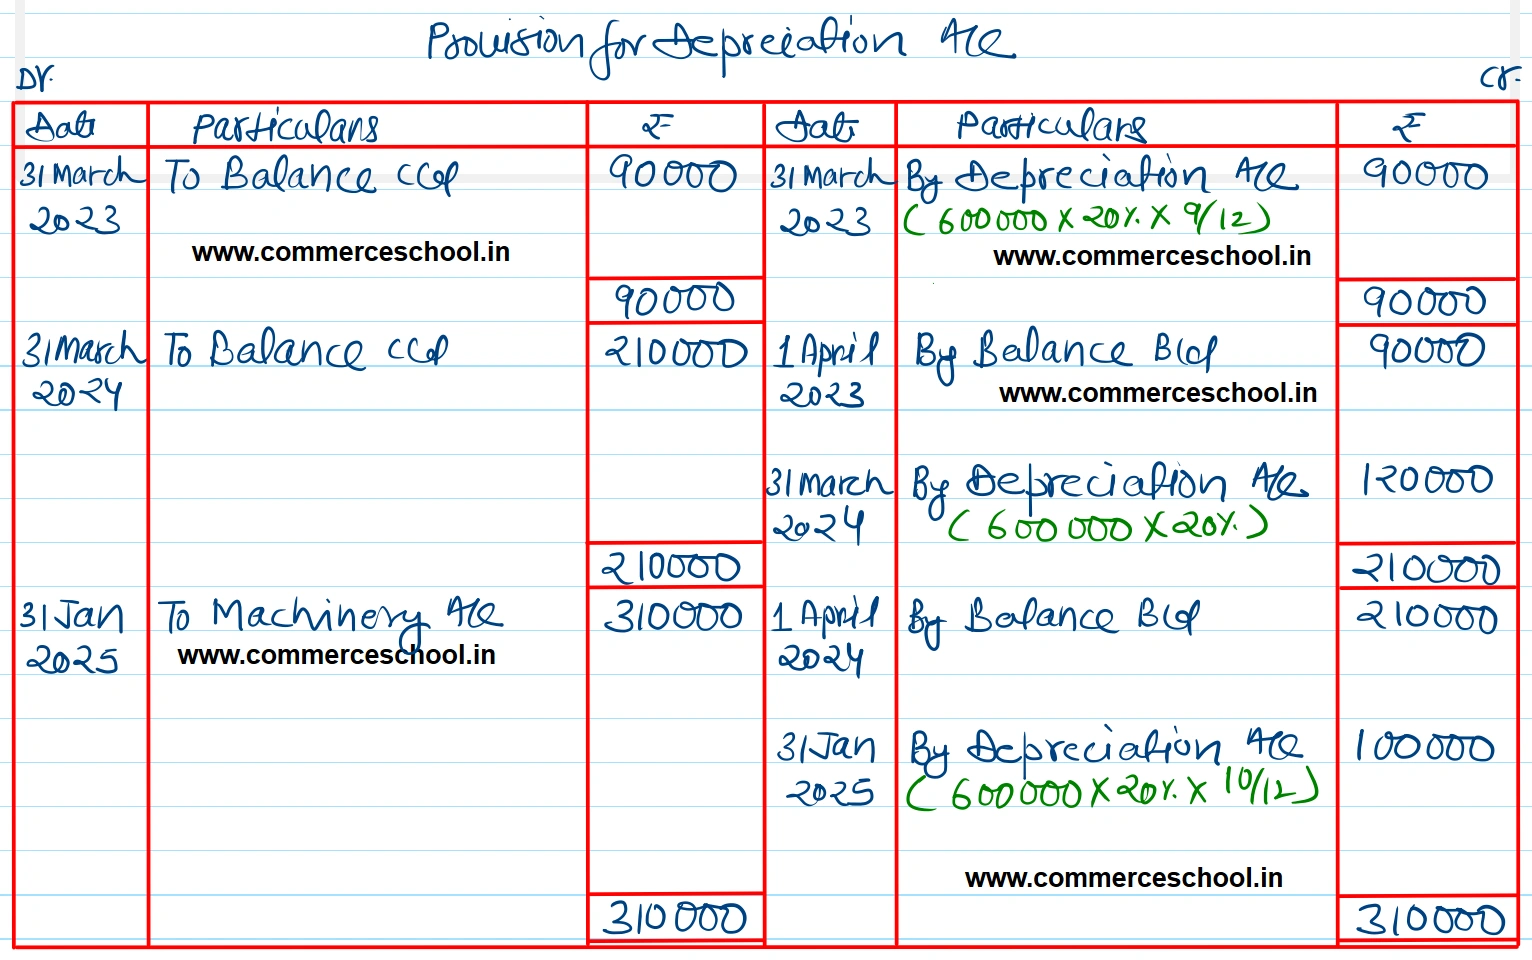 Provision for Depreciation A/c
Dr. Cr.
Date Particulars ₹ Date Particulars ₹
31 March To Balance C/d 90000 31 March By Depreciation A/c 90000
2023 2023 (600000 × 20% × 9/12)
www.commerceschool.in www.commerceschool.in
90000 90000
31 March To Balance C/d 210000 1 April By Balance B/d 90000
2024 2023 www.commerceschool.in
31 March By Depreciation A/c 120000
2024 (600000 × 20%)
210000 210000
31 Jan To Machinery A/c 310000 1 April By Balance B/d 210000
2025 www.commerceschool.in 2024
31 Jan By Depreciation A/c 100000
2025 (600000 × 20% × 10/12)
www.commerceschool.in
310000 310000